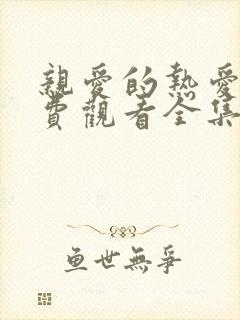 親愛的熱愛
費觀看全集
魚世無爭